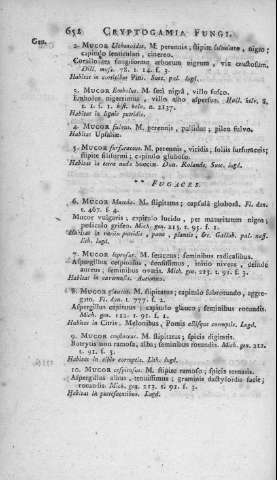 658 CRYPTOGAMIA FUNGI.
2. MUCOR lichenoides. M. perennis, stipite subulato, nigro;
capitulo lenticulari, cinereo.
Coralloides fungiforme arborum nigrum, vix crustosum.
Dill. musc. 78. t. 14. f. 3.
Habitat in corticibus Pini.
3. MUCOR Embolus. M. seta nigra, villo fusco.
Embolus nigerrimus, villo albo aspersus. Hall. helv. 8.
t. 1. f. 1. hist. helv. n. 2137.
Habitat in lignis putridis.
4. MUCOR fulvus. M. perennis, pallidus; pileo fulvo.
Habitat Upsaliæ.
5. MUCOR furfuraceus. M. perennis, viridis, foliis furfuraceis;
stipite filiformi; capitulo globoso.
Habitat in terra nuda Sueciæ. Dan. Rolande. Suec. lugd.
* FUGACES.
6. MUCOR Mucedo. M. stipitatus; capsula globosa. Fl. dan.
t. 467. f. 4.
Mucor vulgaris, capitulo lucido, per maturitatem nigro;
pediculo griseo. Mich. gen. 215. t. 95. f. 1.
Habitat in variis putridis, pane, plantis, &c. Gallob. pal. suff.
lith. lugd.
7. MUCOR leprosus. M. setaceus; seminibus radicalibus.
Aspergillus cespitosus, densissimus, initio niveus, deinde
aureus; seminibus ovatis. Mich. gen. 213. t. 91. f. 3.
Habitat in cavernulis. Burmannus.
8. MUCOR glaucus. M. stipitatus; capitulo subrotundo, aggregato.
Fl. dan. t. 777. f. 2.
Aspergillus capitatus; capitulo glauco; seminibus rotundis.
Mich. gen. 212. t. 91. f. 1.
Habitat in Citris, Melonibus, Pomis aliisque corruptis. Lugd.
9. MUCOR crustaceus. M. stipitatus; spicis digitatis.
Botrytis non ramosa, alba; seminibus rotundis. Mich. gen. 212.
t. 91. f. 3.
Habitat in cibis corruptis. Lith. lugd.
10. MUCOR cespitosus. M. stipite ramoso; spicis ternatis.
Aspergillus albus, tenuissimus; graminis dactyloidis facie;
seminibus rotundis. Mich. gen. 213. t. 91. f. 3.
Habitat in putrescentibus. Lugd.